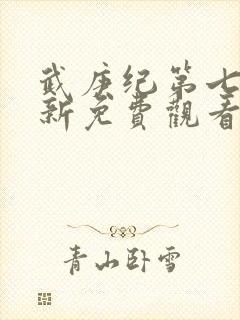 武庚纪第七
新免費觀看
青山卧雪